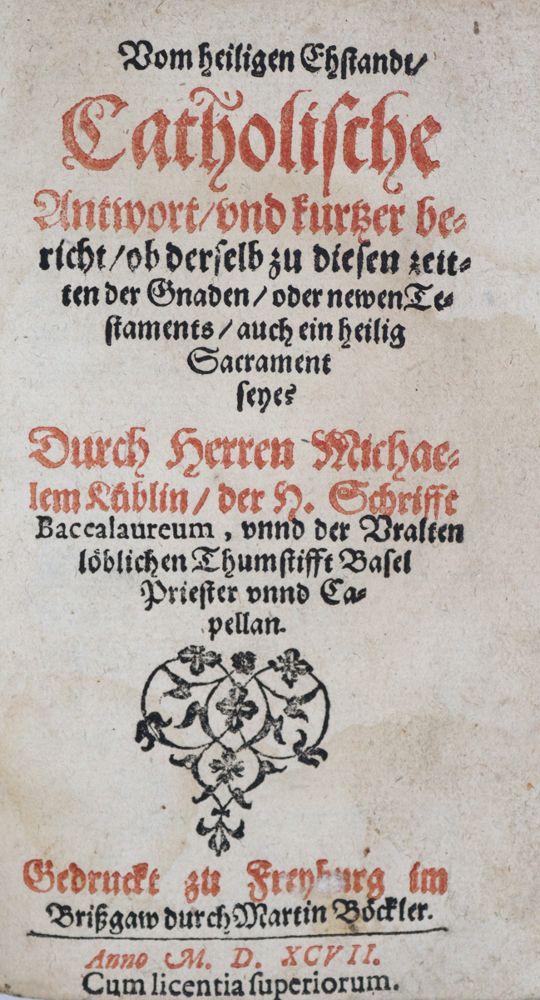 Vom heiligen Ehstandt/
Catholische
Antwort/vnd kurtzer be-
richt/ob derselb zu diesen zeit-
ten der Gnaden/oder newen Te-
staments/auch ein heilig
Sacrament
seye?
Durch Herren Michae-
lem Küblin/der H. Schrifft
Baccalaureum, vnnd der Vralten
löblichen Thumstifft Basel
Priester vnnd Ca-
pellan.
Gedruckt zu Freyburg im
Brißgaw durch Martin Böckler.
Anno M. D. XCVII.
Cum licentia superiorum.